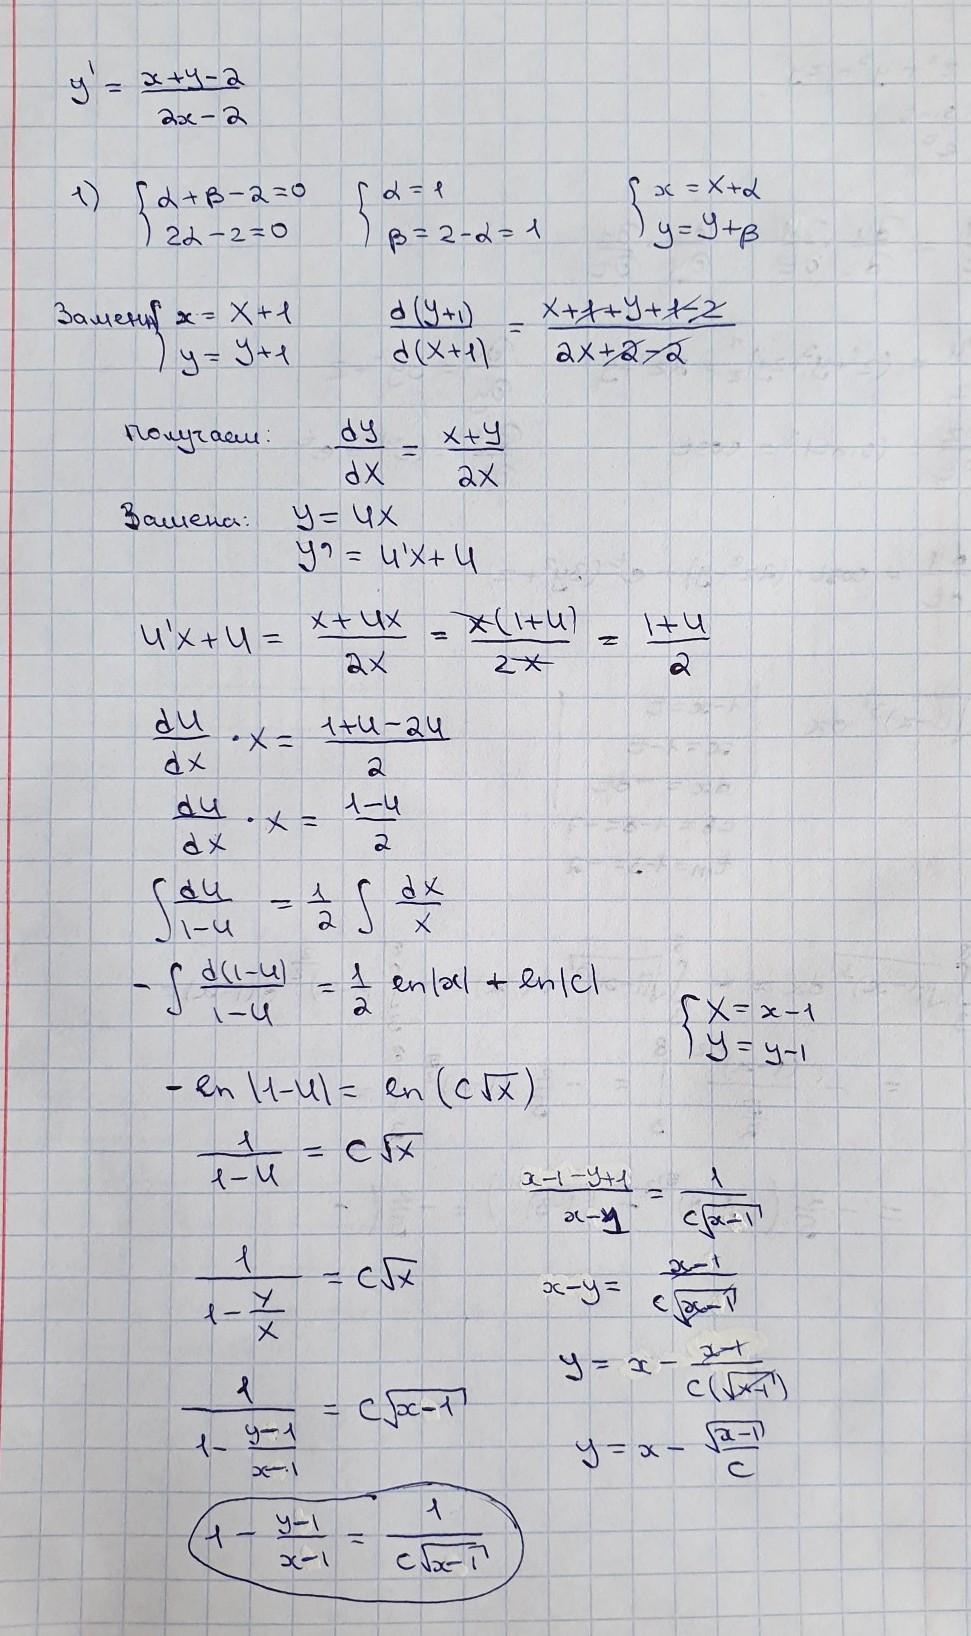 y' = (x+y-2)/(2x-2)
1) { α+β-2=0 { α=1 { x=X+α
2α-2=0 β=2-α=1 y=Y+β
Замена { x = X+1 d(Y+1)/d(X+1) = (X+1+Y+1-2)/(2X+2-2)
y = Y+1
Получаем: dY/dX = (X+Y)/(2X)
Замена: Y = UX
Y' = U'X+U
U'X+U = (X+UX)/(2X) = X(1+U)/(2X) = (1+U)/2
dU/dX · X = (1+U-2U)/2
dU/dX · X = (1-U)/2
∫ dU/(1-U) = 1/2 ∫ dX/X
- ∫ d(1-U)/(1-U) = 1/2 ln|x| + ln|c|
{ X = x-1
Y = y-1
- ln|1-U| = ln(C√X)
1/(1-U) = C√X
1/(1-Y/X) = C√X
1/(1-(y-1)/(x-1)) = C√(x-1)
1 - (y-1)/(x-1) = 1/(C√(x-1))
(x-1-y+1)/(x-y) = 1/(C√(x-1))
x-y = (x-1)/(C√(x-1))
y = x - (x-1)/(C(√(x-1)))
y = x - √(x-1)/C